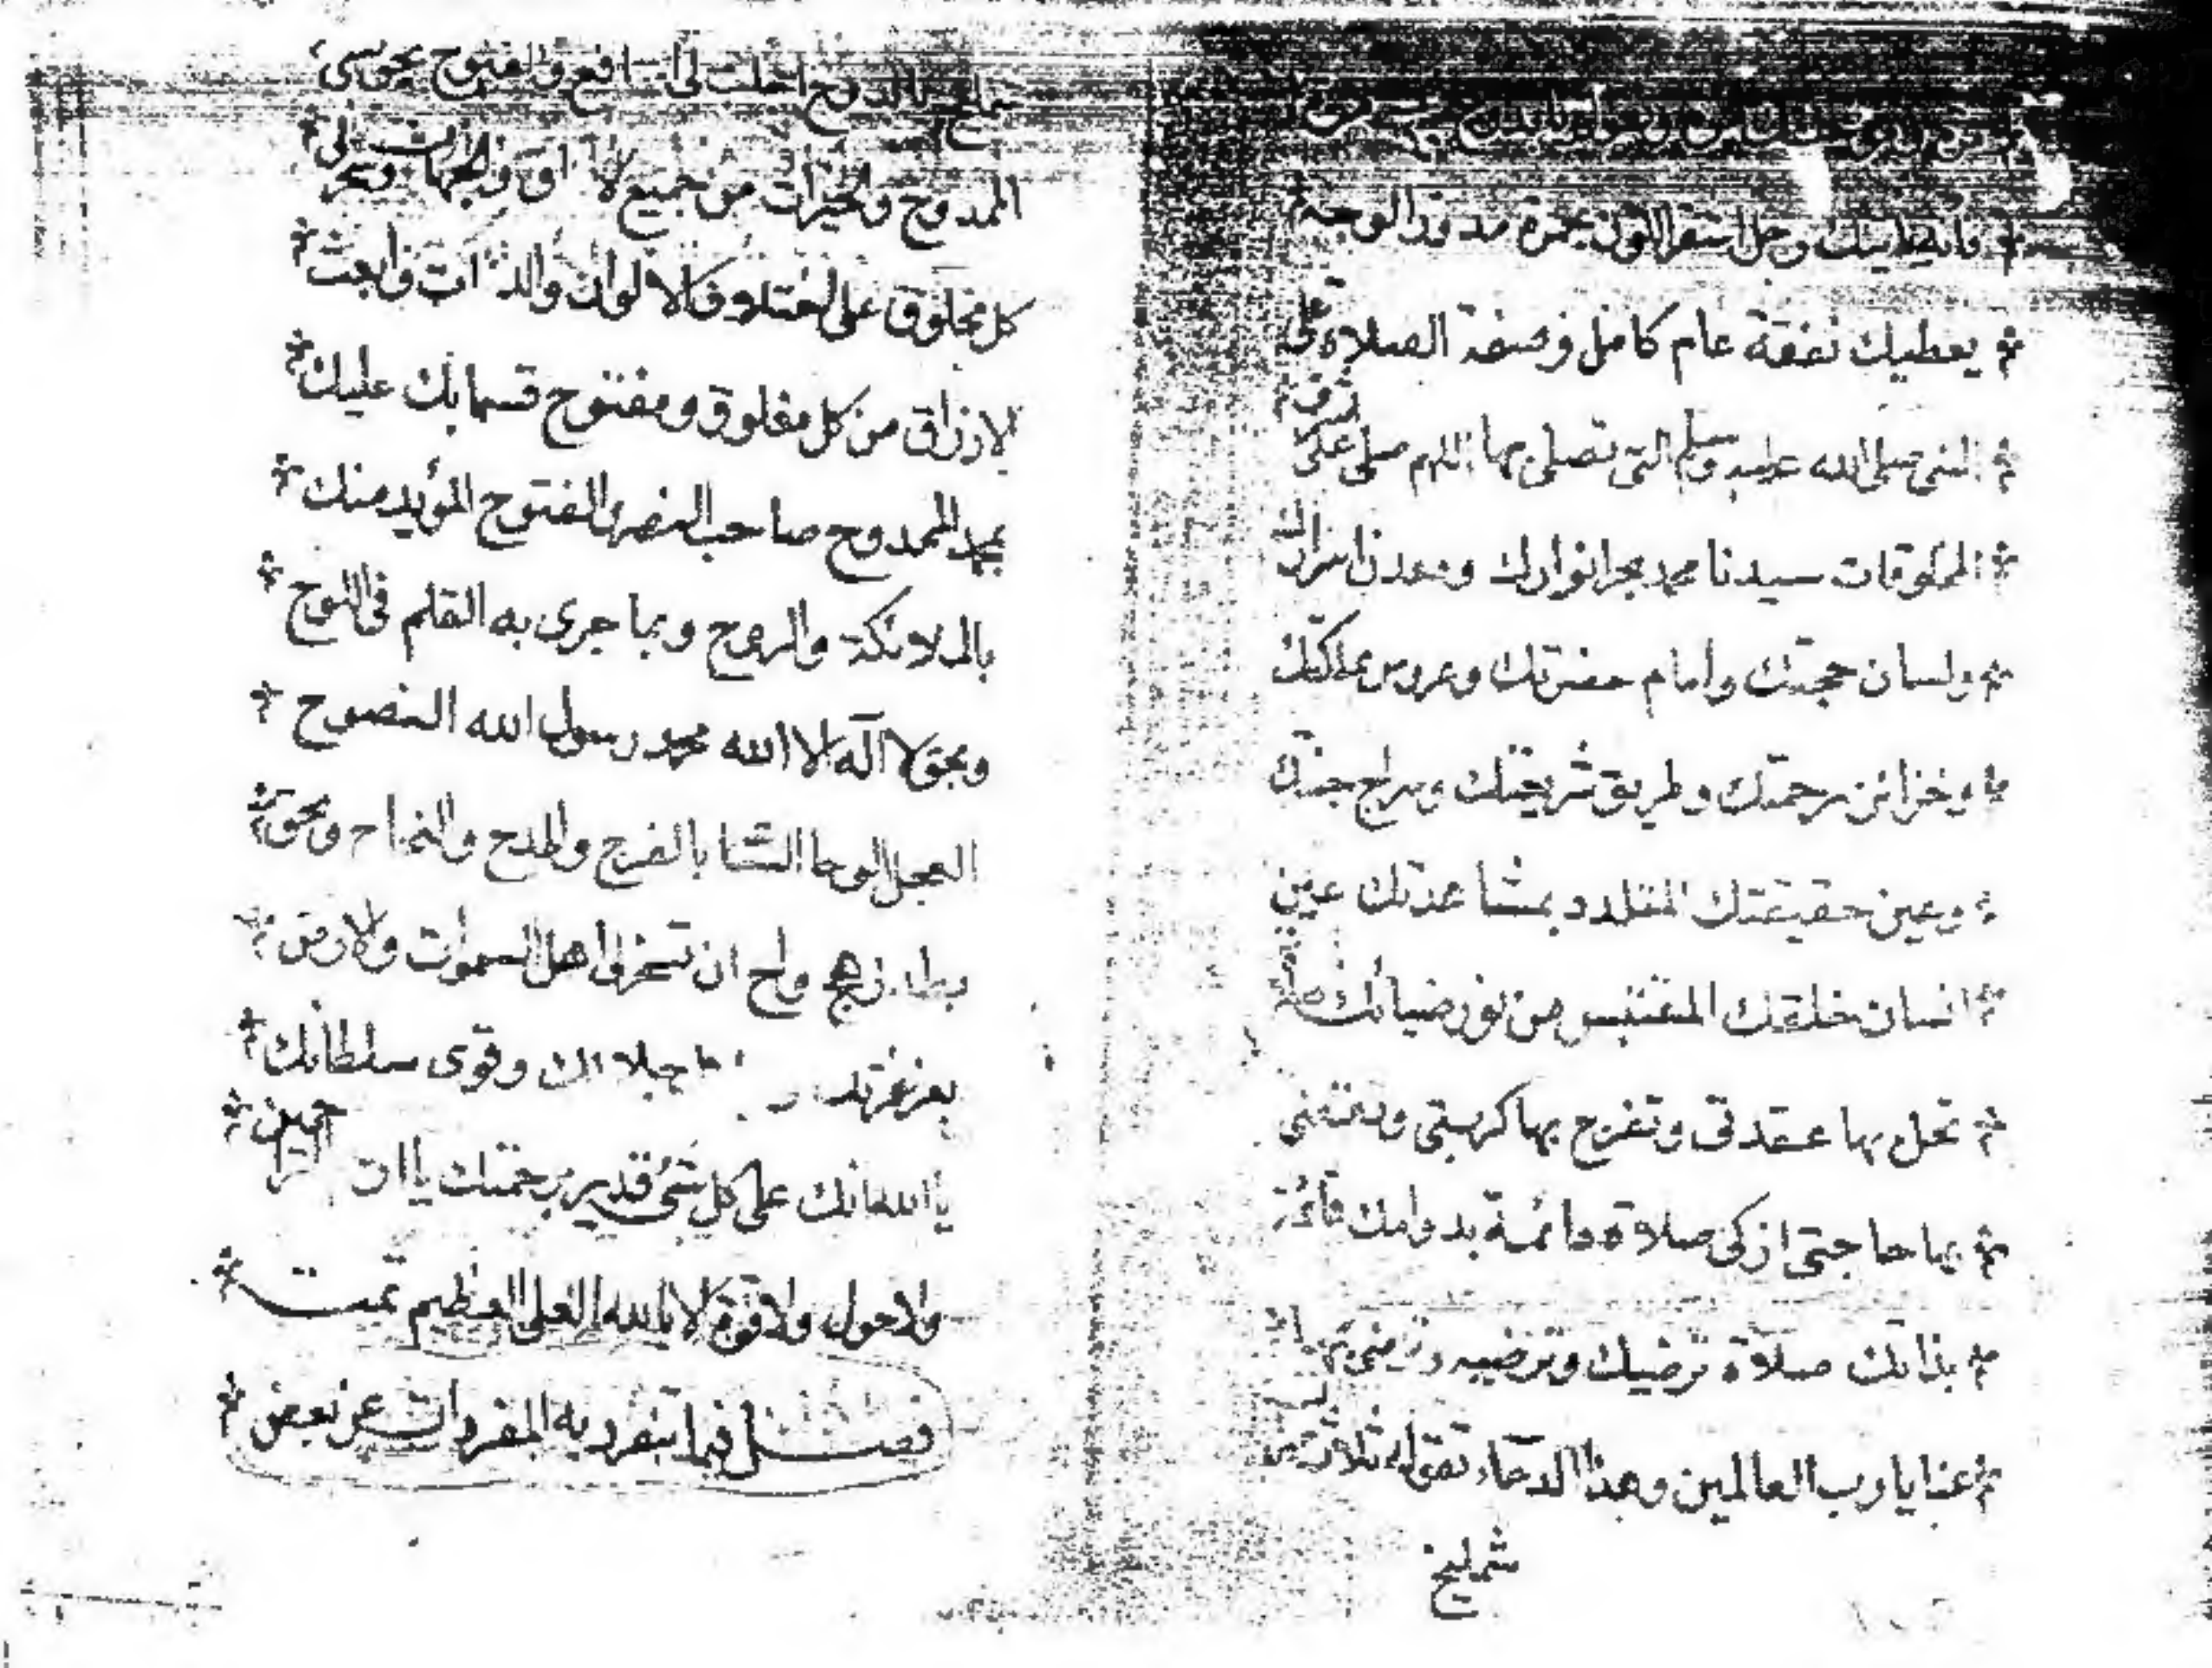 وجل اشقر اللون بحمرة مدور الوجه
يعطيك نفقة عام كامل وصفة الصلاة على
النبي صلى الله عليه وسلم التي تصلى بها اللهم صلى على اشرف
المخلوقات سيدنا محمد بحر انوارك ومعدن اسرارك
ولسان حجتك وامام حضرتك وعروس مملكتك
وخزائن رحمتك وطريق شريعتك وسراج جنتك
وعين حقيقتك المتلدد بمشاهدتك عين
انسان خلقك المقتبس من نور ضيائك صلاة
تحل بها عقدتي وتفرج بها كربتي وتقضي
بها حاجتي ازكى صلاة دائمة بدوامك قائمة
بذاتك صلاة ترضيك وترضيه وترضى بها
عنا يا رب العالمين وهذا الدعاء تقوله ثلاث
شمليخ
شمليخ اجلب لي المنافع والفتوح بحق
الممدوح والخيرات من جميع الآفاق والجهات وسخر لي
كل مخلوق على اختلاف الالوان والذات وابعث
الارزاق من كل مغلوق ومفتوح قسما بك عليك
بمحمد الممدوح صاحب النصر الفتوح المؤيد منك
بالملائكة والروح وبما جرى به القلم في اللوح
وبحق لا آله الا الله محمد رسول الله النصوح
العجل الوحا الشا بالفرج والمدح والنجاح وبحق
بطد زهج واح ان تسخر لي اهل السموات والارض
بعز عزتك جلالك وقوى سلطانك
يا الله انك على كل شئ قدير برحمتك يا ارحم الراحمين
ولا حول ولا قوة الا بالله العلي العظيم تمت
فصل فيما تنفرد به المفردات عن بعض